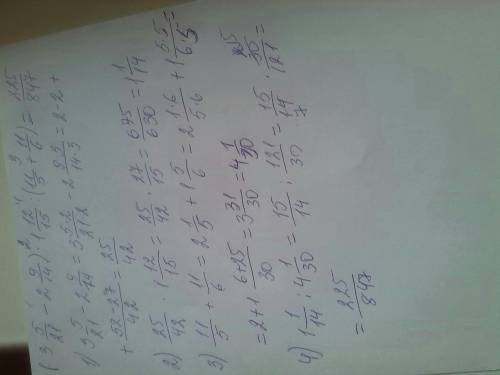 (3 5/21 - 2 9/14) · 1 12/15 : (11/5 + 11/6) = 225/847
1) 3 5/21 - 2 9/14 = 3 5·2/21·2 - 2 9·3/14·3 = 2-2+
+ 52-27/42 = 25/42
2) 25/42 · 1 12/15 = 25/42 · 27/15 = 675/630 = 1 1/14
3) 11/5 + 11/6 = 2 1/5 + 1 5/6 = 2 1·6/5·6 + 1 5·5/6·5 =
= 2+1 6+25/30 = 3 31/30 = 4 1/30
4) 1 1/14 : 4 1/30 = 15/14 : 121/30 = 15/14 · 30/121 =
= 225/847